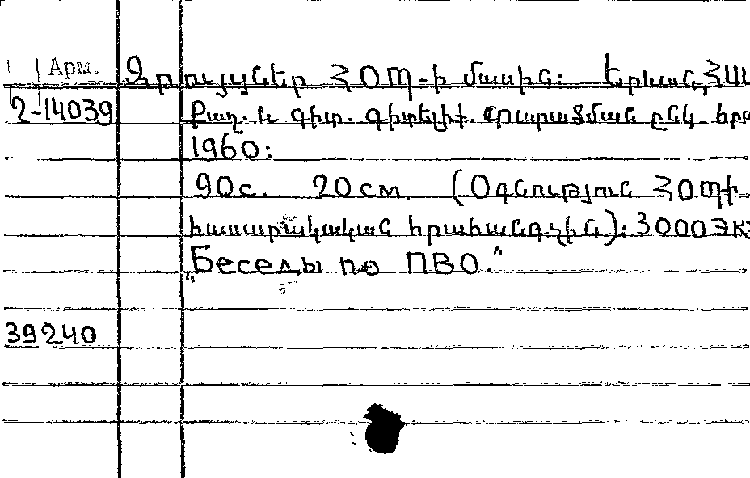 Арм. Զրույցներ ՀՕՊ-ի մասին: Երևան, ՀՍ
2-14039 Քաղ. և գիտ. գիտելիք. տարածման ընկ. հր
1960:
90с. 20см. (Օգնություն ՀՕՊի
հասարակական հրահանգչին): 3000экз
„Беседы по ПВО."
39240